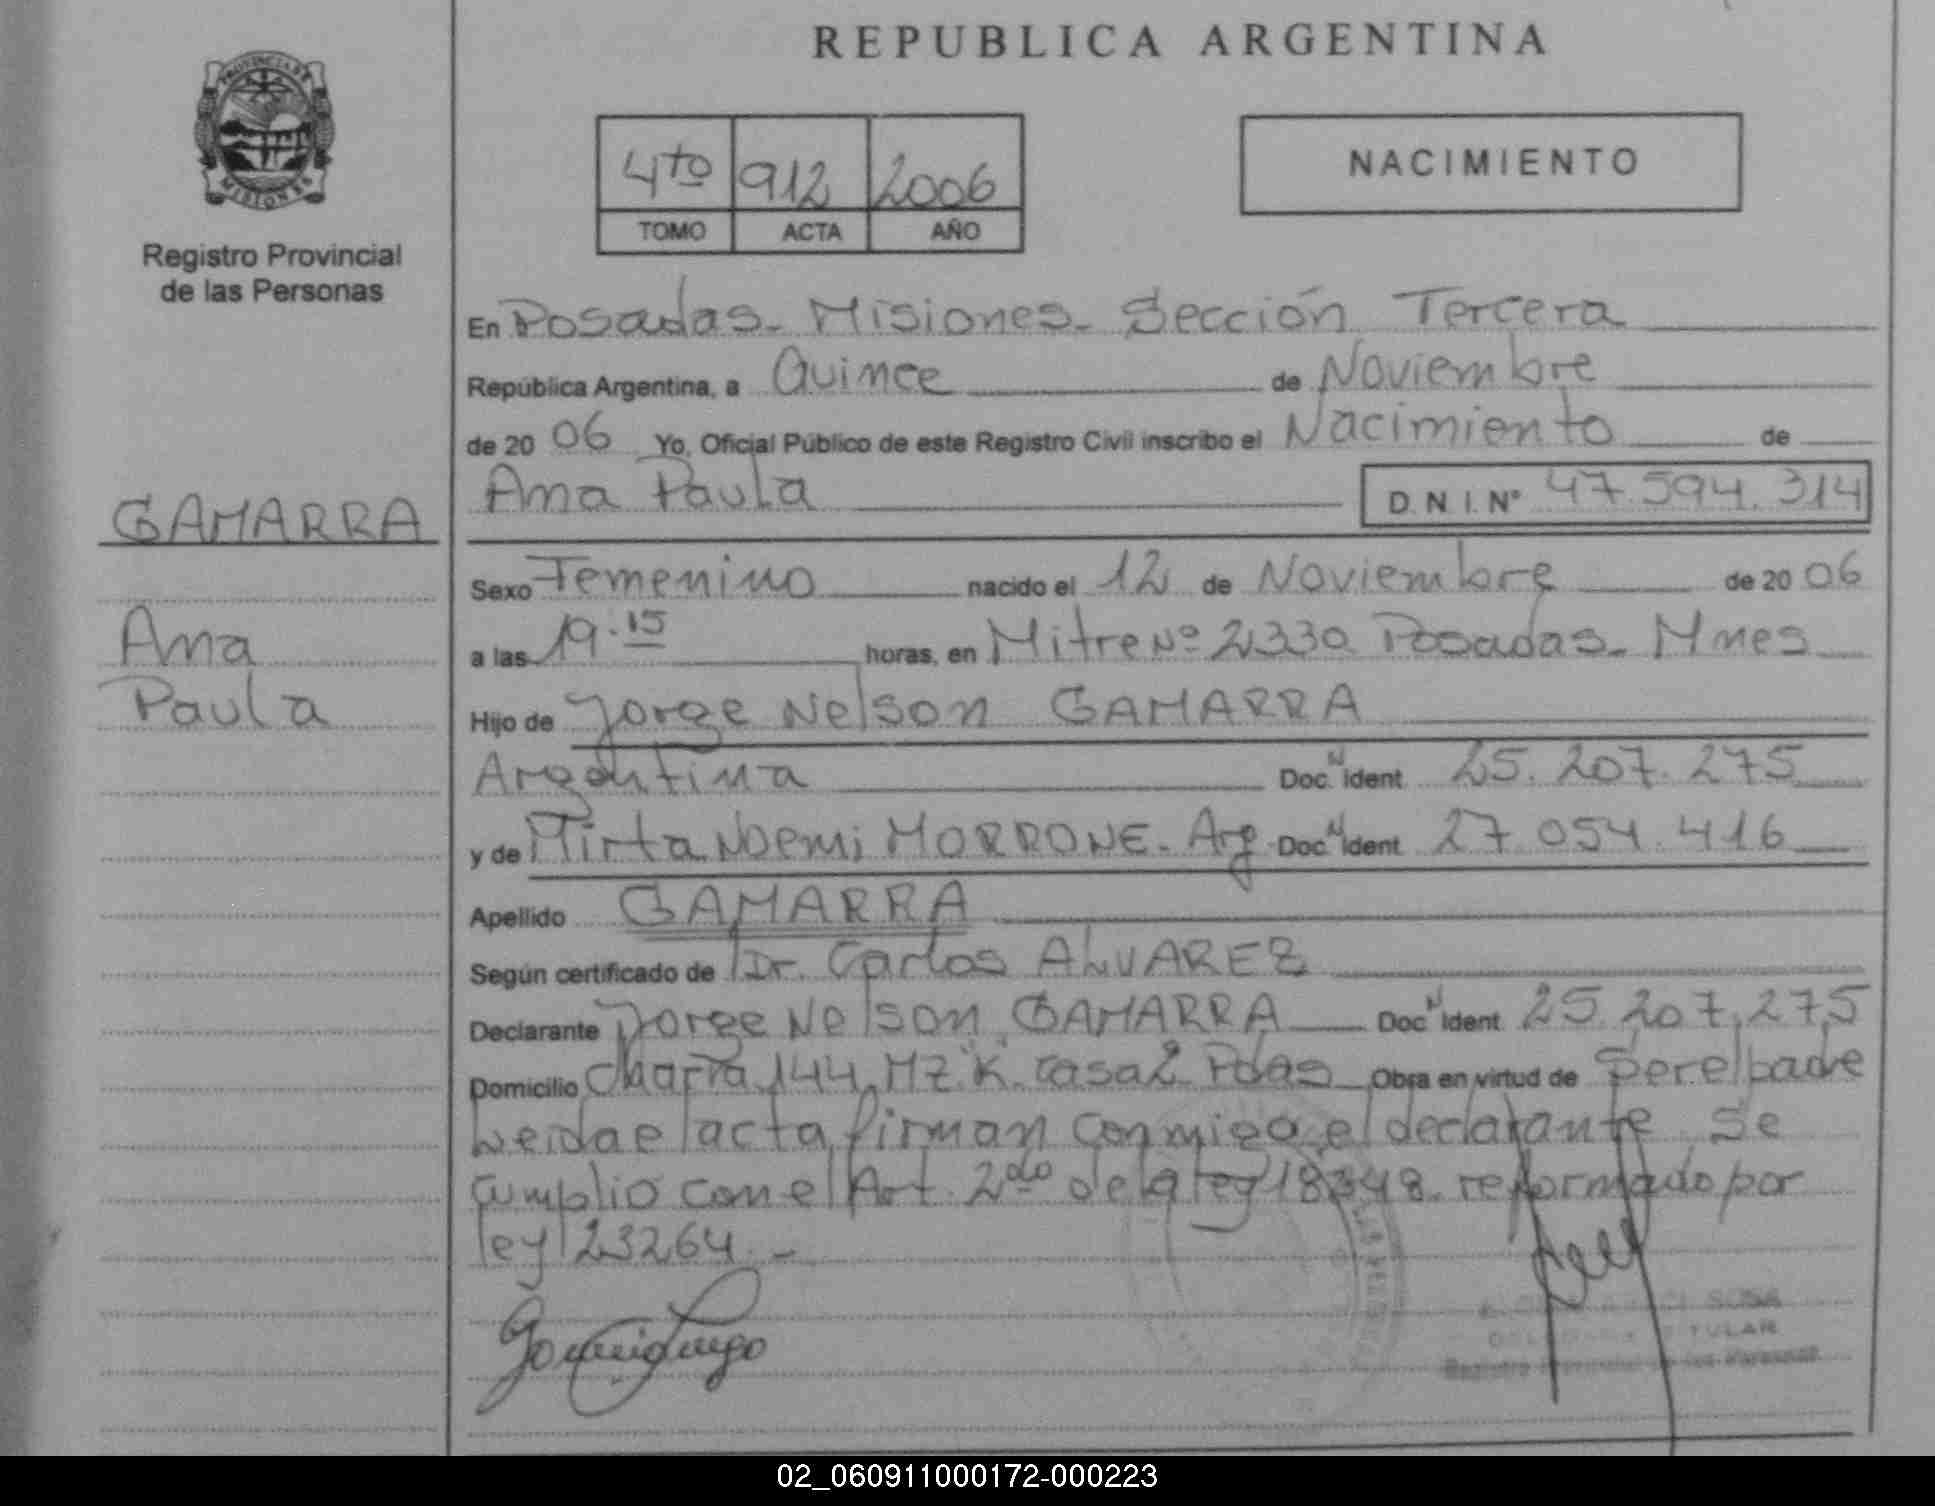 REPUBLICA ARGENTINA
PROVINCIA DE
MISIONES
Registro Provincial
de las Personas
4to 912 2006
TOMO ACTA AÑO
NACIMIENTO
GAMARRA
Ana
Paula
En Posadas - Misiones - Sección Tercera
República Argentina, a Quince de Noviembre
de 2006 Yo, Oficial Público de este Registro Civil inscribo el Nacimiento de
Ana Paula D.N.I.Nº 47.594.314
Sexo Femenino nacido el 12 de Noviembre de 2006
a las 19.15 horas, en Mitre Nº 2330 Posadas - Mnes
Hijo de Jorge Nelson GAMARRA
Argentina Doc. N Ident 25.207.275
y de Mirta Noemi MORRONE - Arg. Doc. N Ident 27.054.416
Apellido GAMARRA
Según certificado de Dr. Carlos ALVAREZ
Declarante Jorge Nelson GAMARRA Doc N Ident 25.207.275
Domicilio Chacra 144 MZ "K" casa 2 Pdas Obra en virtud de Ser el padre
Leida el acta firman conmigo el declarante Se
cumplió con el Art. 2do de la ley 18348 reformado por
ley 23264. -
SOSA
TITULAR
Registro Provincial de las Personas
02_060911000172-000223